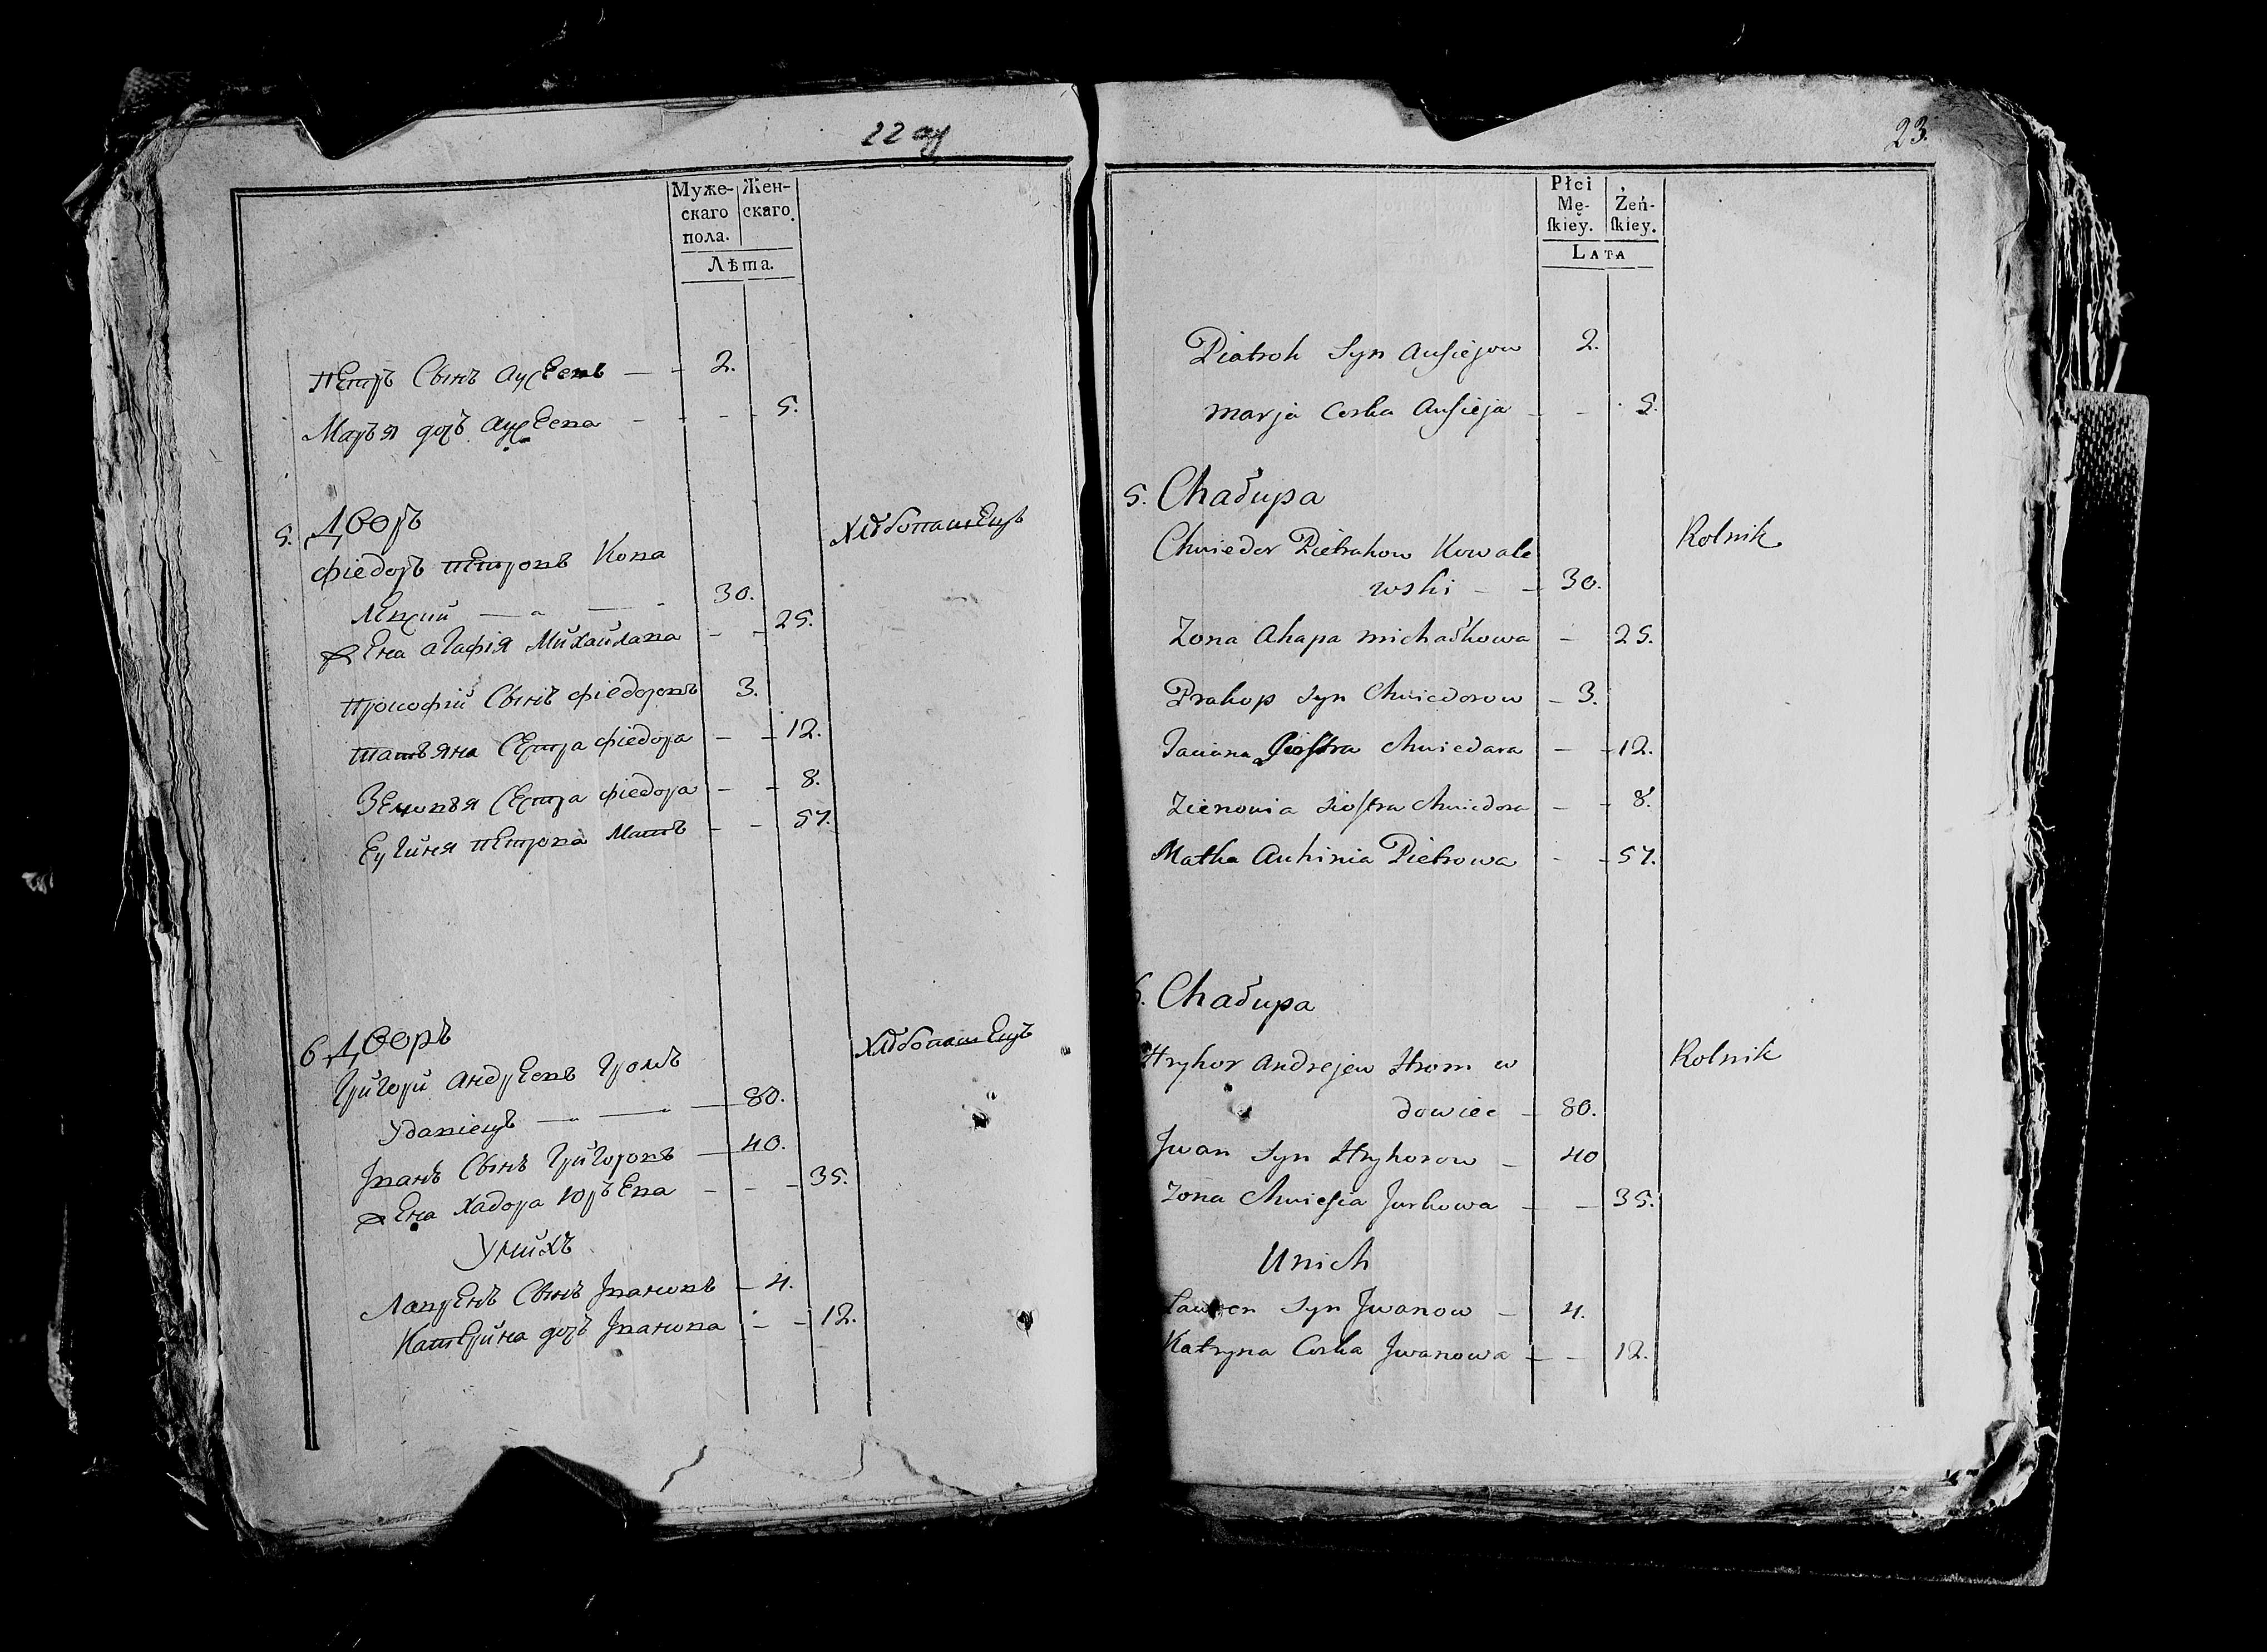 22 об
Муже-
скаго
пола.
Жен-
скаго.
Лѣта.
Петръ Сынъ Аусеевъ — - 2.
Марья дочь Аусеева - - - 5.
5. Дворъ
Фіедоръ Петровъ Кова
Хлѣбопашецъ
левский — " — " 30.
Жена Агафія Михайлава - - 25.
Прокофий Сынъ Фіедоровъ 3.
Татьяна Сестра Фіедора - - 12.
Зеновья Сестра Фіедора - - 8.
Еугиня Петрова Мать - - 57.
6 Дворъ
Хлѣбопашецъ
Григори Андреевъ Громъ
Удавіецъ — " — " — 80.
Іванъ Сынъ Григоровъ — 40.
Жена Хадора Юрьева - - - 35.
У нихъ
Лаврень Сынъ Івановъ - 4.
Катерина дочь Іванова - - 12.
23.
Płci
Mę-
ſkiey.
Żeń-
ſkiey.
LATA
Piatroh Syn Ausiejow 2.
Marja Corka Ausieja - - 5.
5. Chałupa
Chwiedor Pietrahow Kowale
Rolnik
wski - - 30.
Zona Ahapa Michałkowa - 25.
Prakop Syn Chwiedorow - 3.
Taciana Siostra Chwiedara - - 12.
Zienowia Siostra Chwiedora - - 8.
Matka Auhinia Pietrowa - - 57.
6. Chałupa
Hryhor Andrejew Hrom w
Rolnik
dowiec - 80.
Jwan Syn Hryhorow - 40
Zona Chwiesia Jurkowa - - 35.
U nich
Lawren Syn Jwanow - 4.
Katryna Corka Jwanowa - - 12.